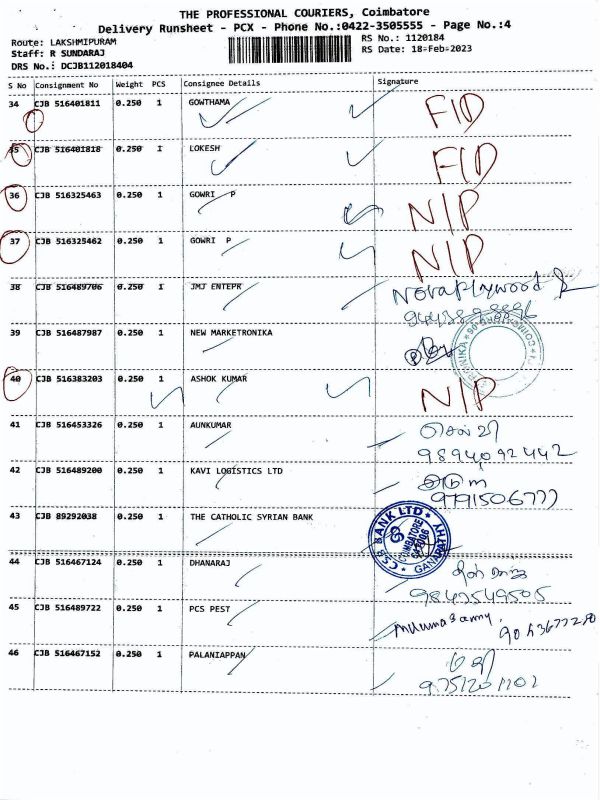 THE PROFESSIONAL COURIERS, Coimbatore
Delivery Runsheet - PCX - Phone No.:0422-3505555 - Page No.:4
Route: LAKSHMIPURAM RS No.: 1120184
Staff: R SUNDARAJ RS Date: 18-Feb-2023
DRS No.: DCJB112018404
S No Consignment No Weight PCS Consignee Details Signature
34 CJB 516401811 0.250 1 GOWTHAMA FID
35 CJB 516401818 0.250 1 LOKESH FID
36 CJB 516325463 0.250 1 GOWRI P N/P
37 CJB 516325462 0.250 1 GOWRI P N/P
38 CJB 516489706 0.250 1 JMJ ENTEPR Nova Plywood
39 CJB 516487987 0.250 1 NEW MARKETRONIKA
40 CJB 516383203 0.250 1 ASHOK KUMAR N/P
41 CJB 516453326 0.250 1 AUNKUMAR செல்வி
9894092442
42 CJB 516489200 0.250 1 KAVI LOGISTICS LTD
9791506777
43 CJB 89292038 0.250 1 THE CATHOLIC SYRIAN BANK CSB BANK LTD COIMBATORE
44 CJB 516467124 0.250 1 DHANARAJ
9843549505
45 CJB 516489722 0.250 1 PCS PEST
46 CJB 516467152 0.250 1 PALANIAPPAN
9751201102